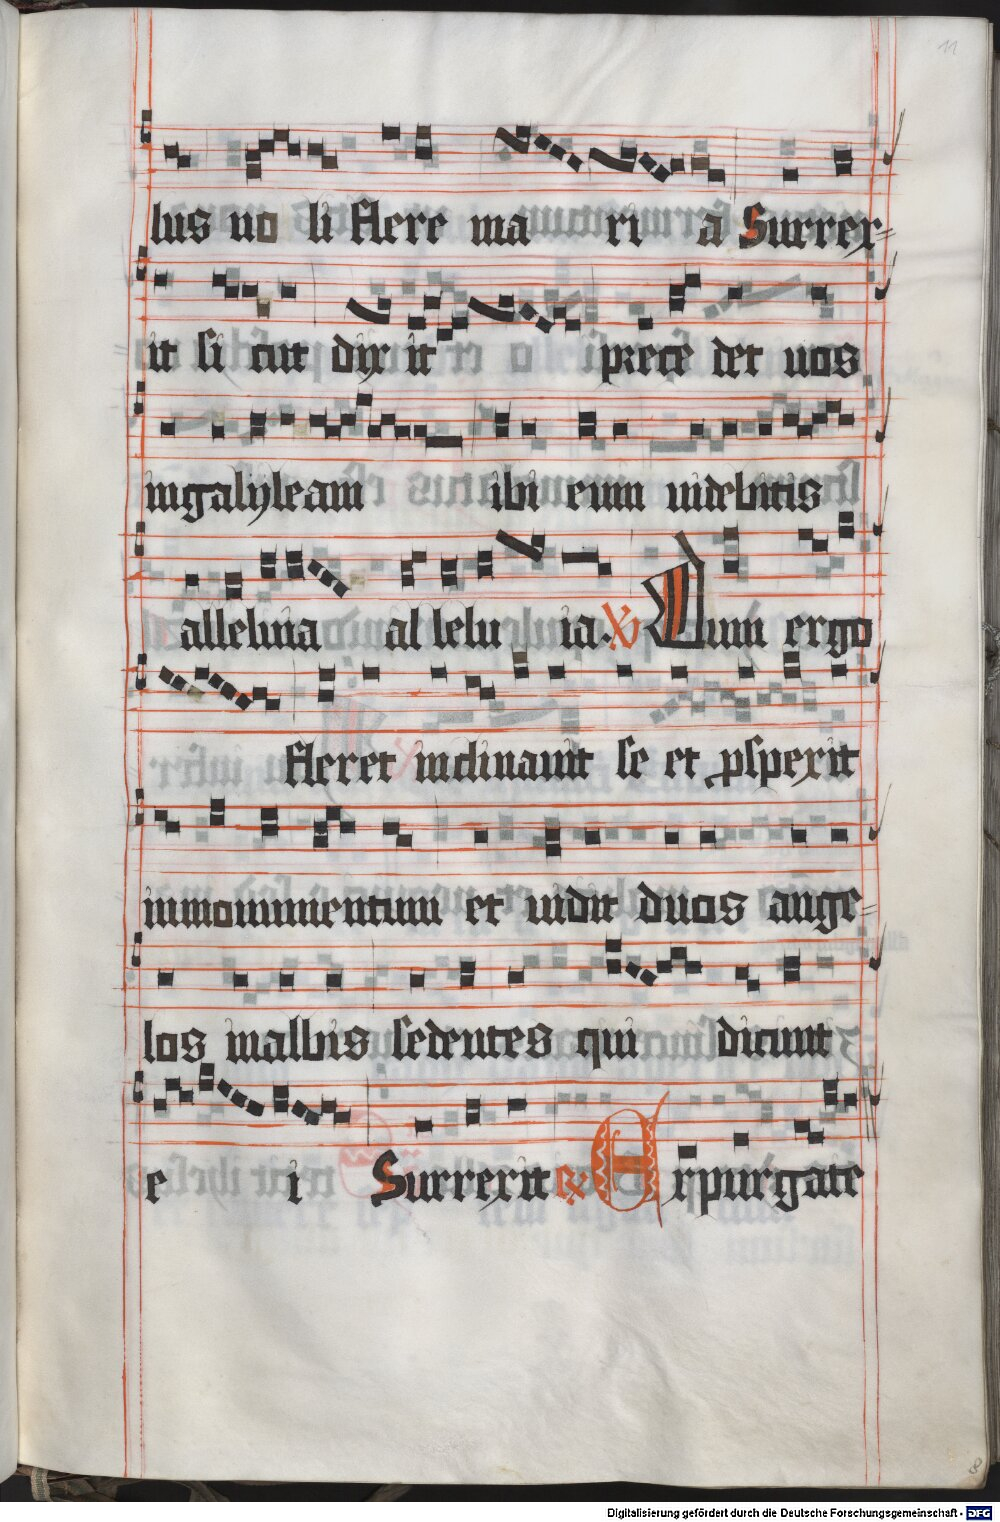 11
lus no li flere ma ri a Surrex
it si cut dixit iprece det uos
ingalyleam ibi eum uidebitis
alleluia al lelu ia. ℣ Dum ergo
fleret inclinauit se et ꝓspexit
inmonumentum et uidit duos ange
los inalbis sedentes qui dicunt
e i Surrexit ℟ Expurgate
Digitalisierung gefördert durch die Deutsche Forschungsgemeinschaft - DFG